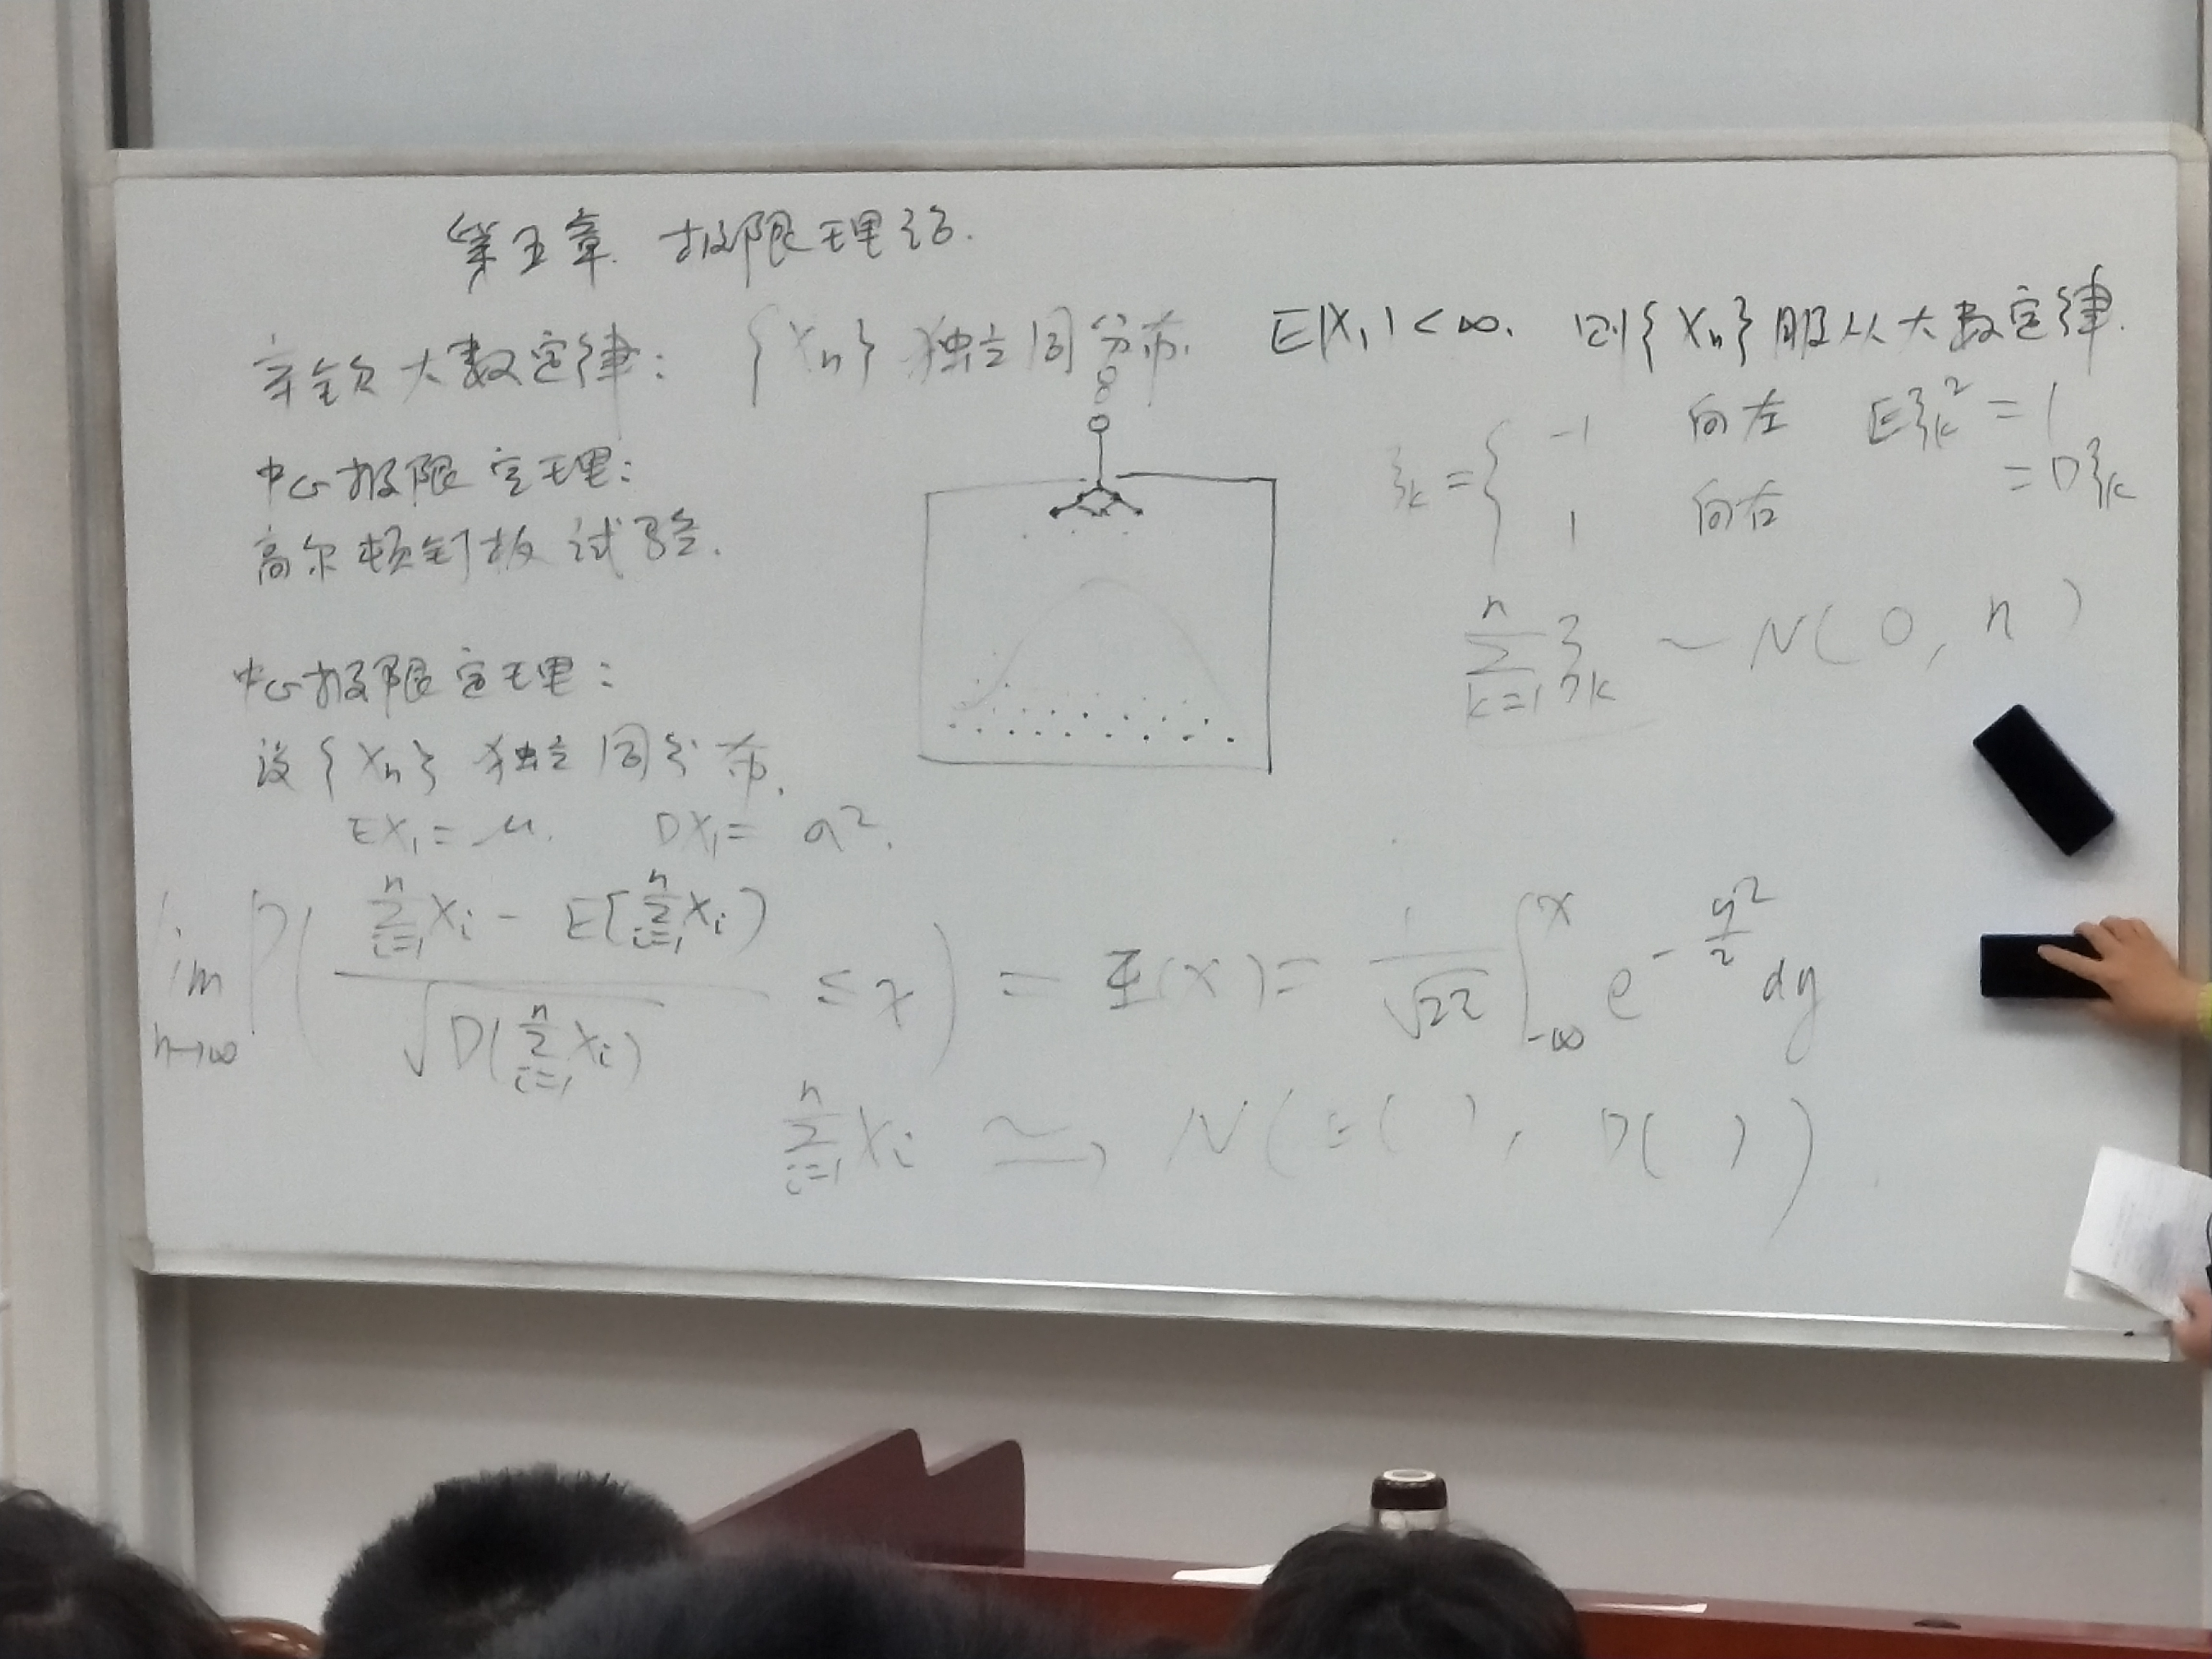 第五章 极限理论.
辛钦大数定律: {Xn} 独立同分布. E|X₁|<∞. 则{Xn}服从大数定律.
中心极限定理:
高尔顿钉板试验.
ξk = { -1 向左
1 向右
Eξk² = 1
= Dξk
∑_{k=1}^{n} ξk ~ N(0, n)
中心极限定理:
设{Xn} 独立同分布.
EX₁=μ. DX₁= σ².
lim_{n→∞} P( (∑_{i=1}^{n} Xi - E[∑_{i=1}^{n} Xi) / √D(∑_{i=1}^{n} Xi) ≤ x ) = Φ(x) = 1/√2π ∫_{-∞}^{x} e^{-y²/2} dy
∑_{i=1}^{n} Xi ≃ N( E( ), D( ) )